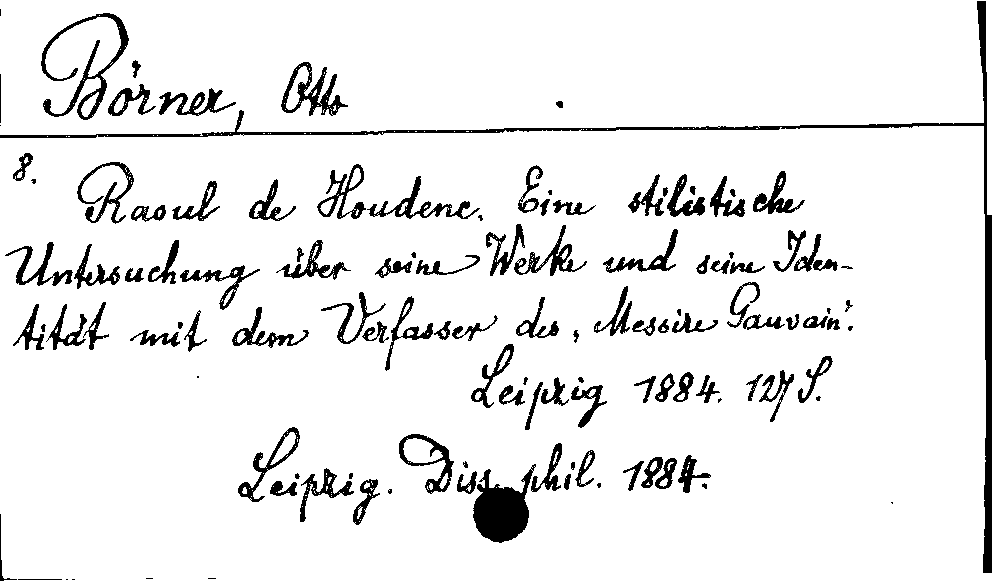 Börner, Otto
8.
Raoul de Houdenc. Eine stilistische
Untersuchung über seine Werke und seine Iden-
tität mit dem Verfasser des "Messire Gauvain".
Leipzig 1884. 127 S.
Leipzig. Diss. phil. 1884.